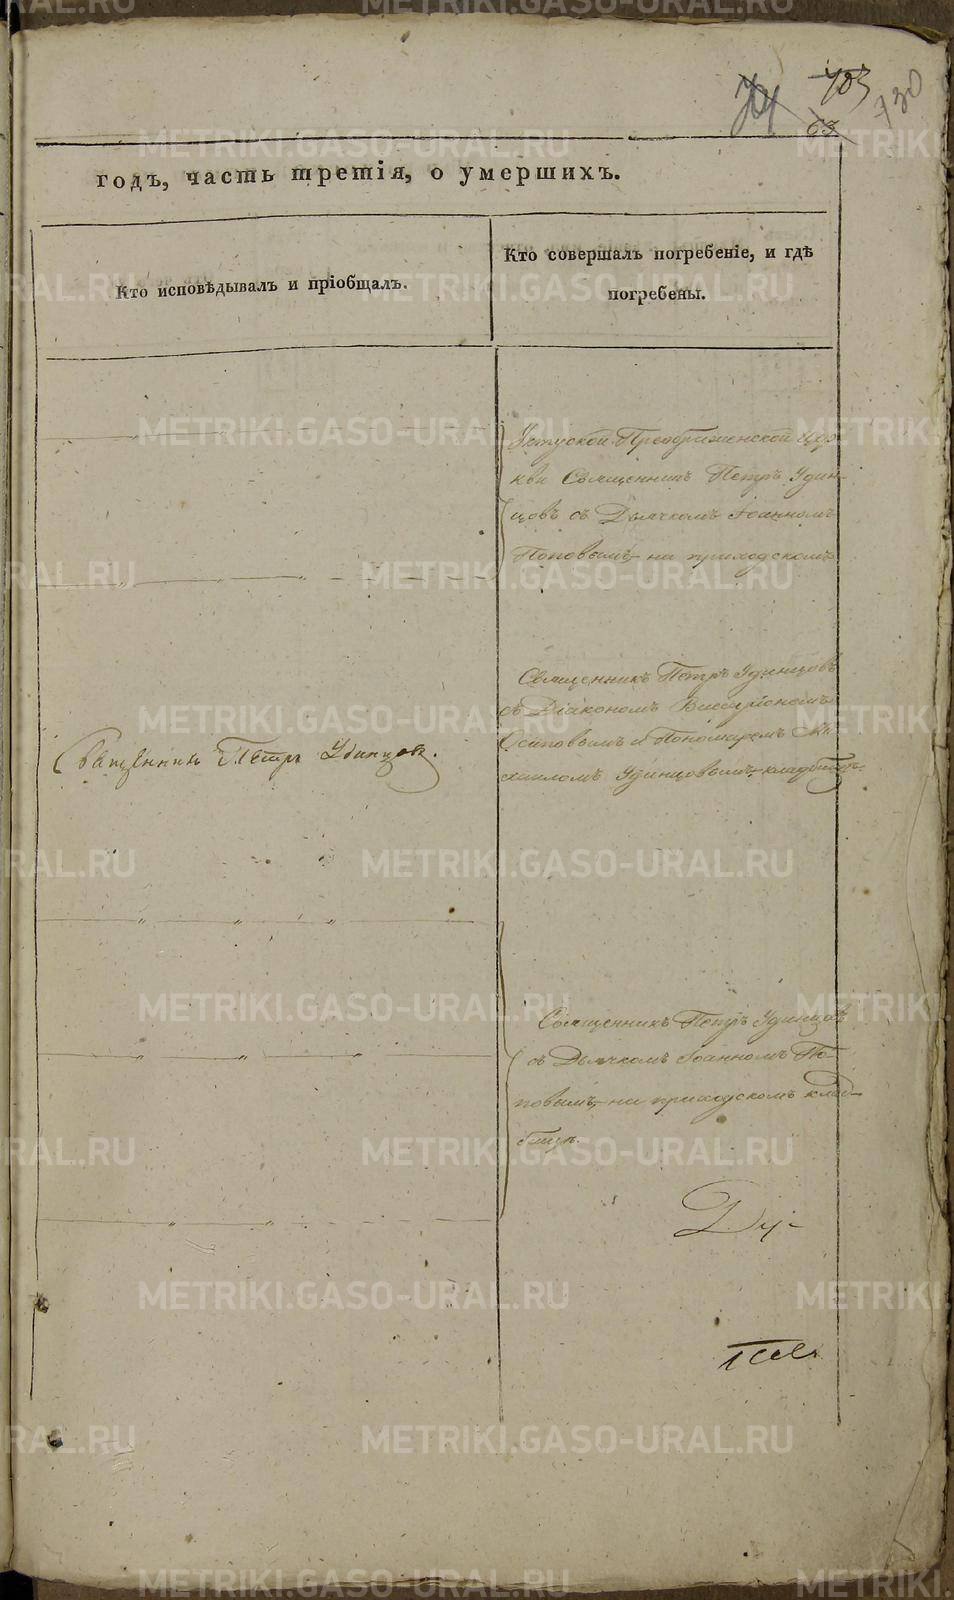 703
730
74
68
годъ, часть третія, о умершихъ.
Кто исповѣдывалъ и пріобщалъ.
Кто совершалъ погребеніе, и гдѣ
погребены.
Преображенской Цер-
кви Священникъ Петръ Удин-
цовъ съ Дьячкомъ Іоанномъ
Поповымъ, на приходскомъ
Священникъ Петръ Удинцовъ
съ Діакономъ Виссаріономъ
Осиповымъ и Пономаремъ Ми-
хаиломъ Удинцовымъ
Священникъ Петръ Удинцовъ.
Священникъ Петръ Удинцовъ
съ Дьячкомъ Іоанномъ По-
повымъ, на приходскомъ клад-
бищѣ.
METRIKI.GASO-URAL.RU